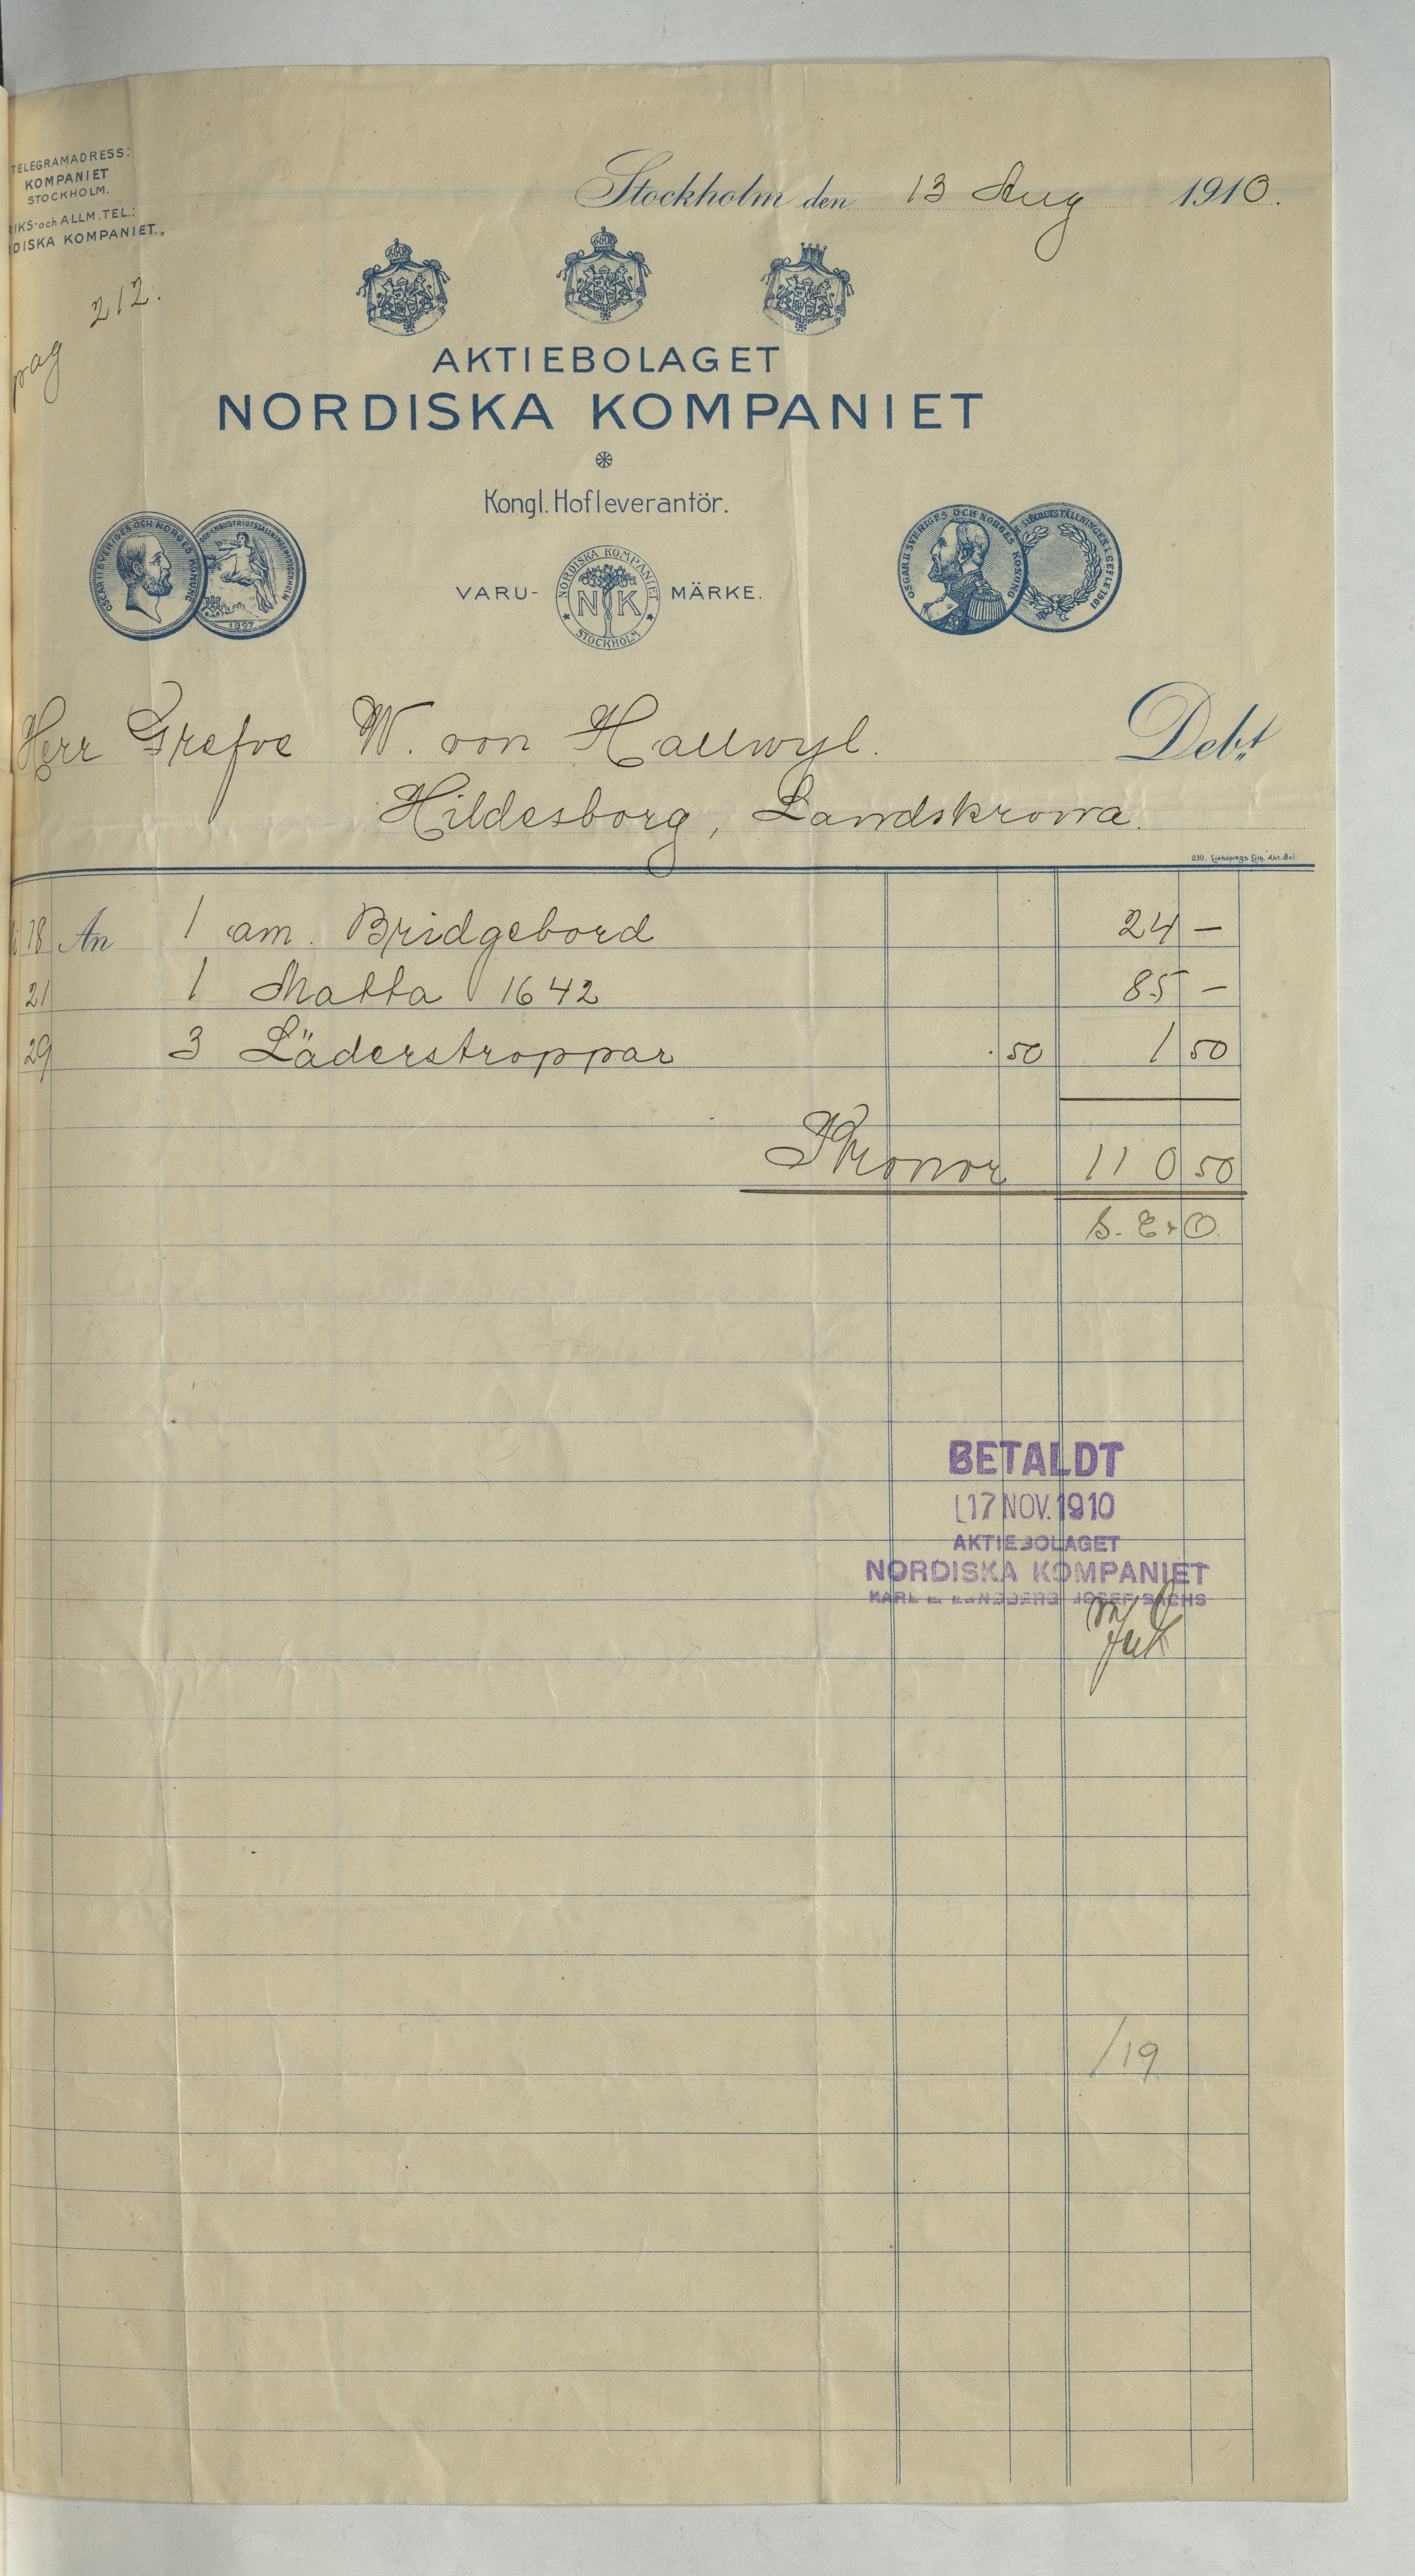 TELEGRAMADRESS:
KOMPANIET
STOCKHOLM.
IKS- och ALLM. TEL.:
DISKA KOMPANIET.„
pag 212.
Stockholm den 13 Aug 1910.
AKTIEBOLAGET
NORDISKA KOMPANIET
Kongl. Hofleverantör.
OSCAR II SVERIGES OCH NORGES KONUNG
1897
VARU-
NORDISKA KOMPANIET
NK
STOCKHOLM
MÄRKE.
OSCAR II SVERIGES OCH NORGES KONUNG
I GEFLE 1901
Herr Grefve W. von Hallwyl. Debt
Hildesborg, Landskrona.
230. Linköpings Lith. Akt. Bol.
18 An 1 am. Bridgebord 24 —
21 1 Matta 1642 85 —
29 3 Läderstroppar . 50 1 50
Kronor 110 50
S. E. & O.
BETALDT
17 NOV. 1910
AKTIEBOLAGET
NORDISKA KOMPANIET
KARL LUNDBERG JOSEF SACHS
/19